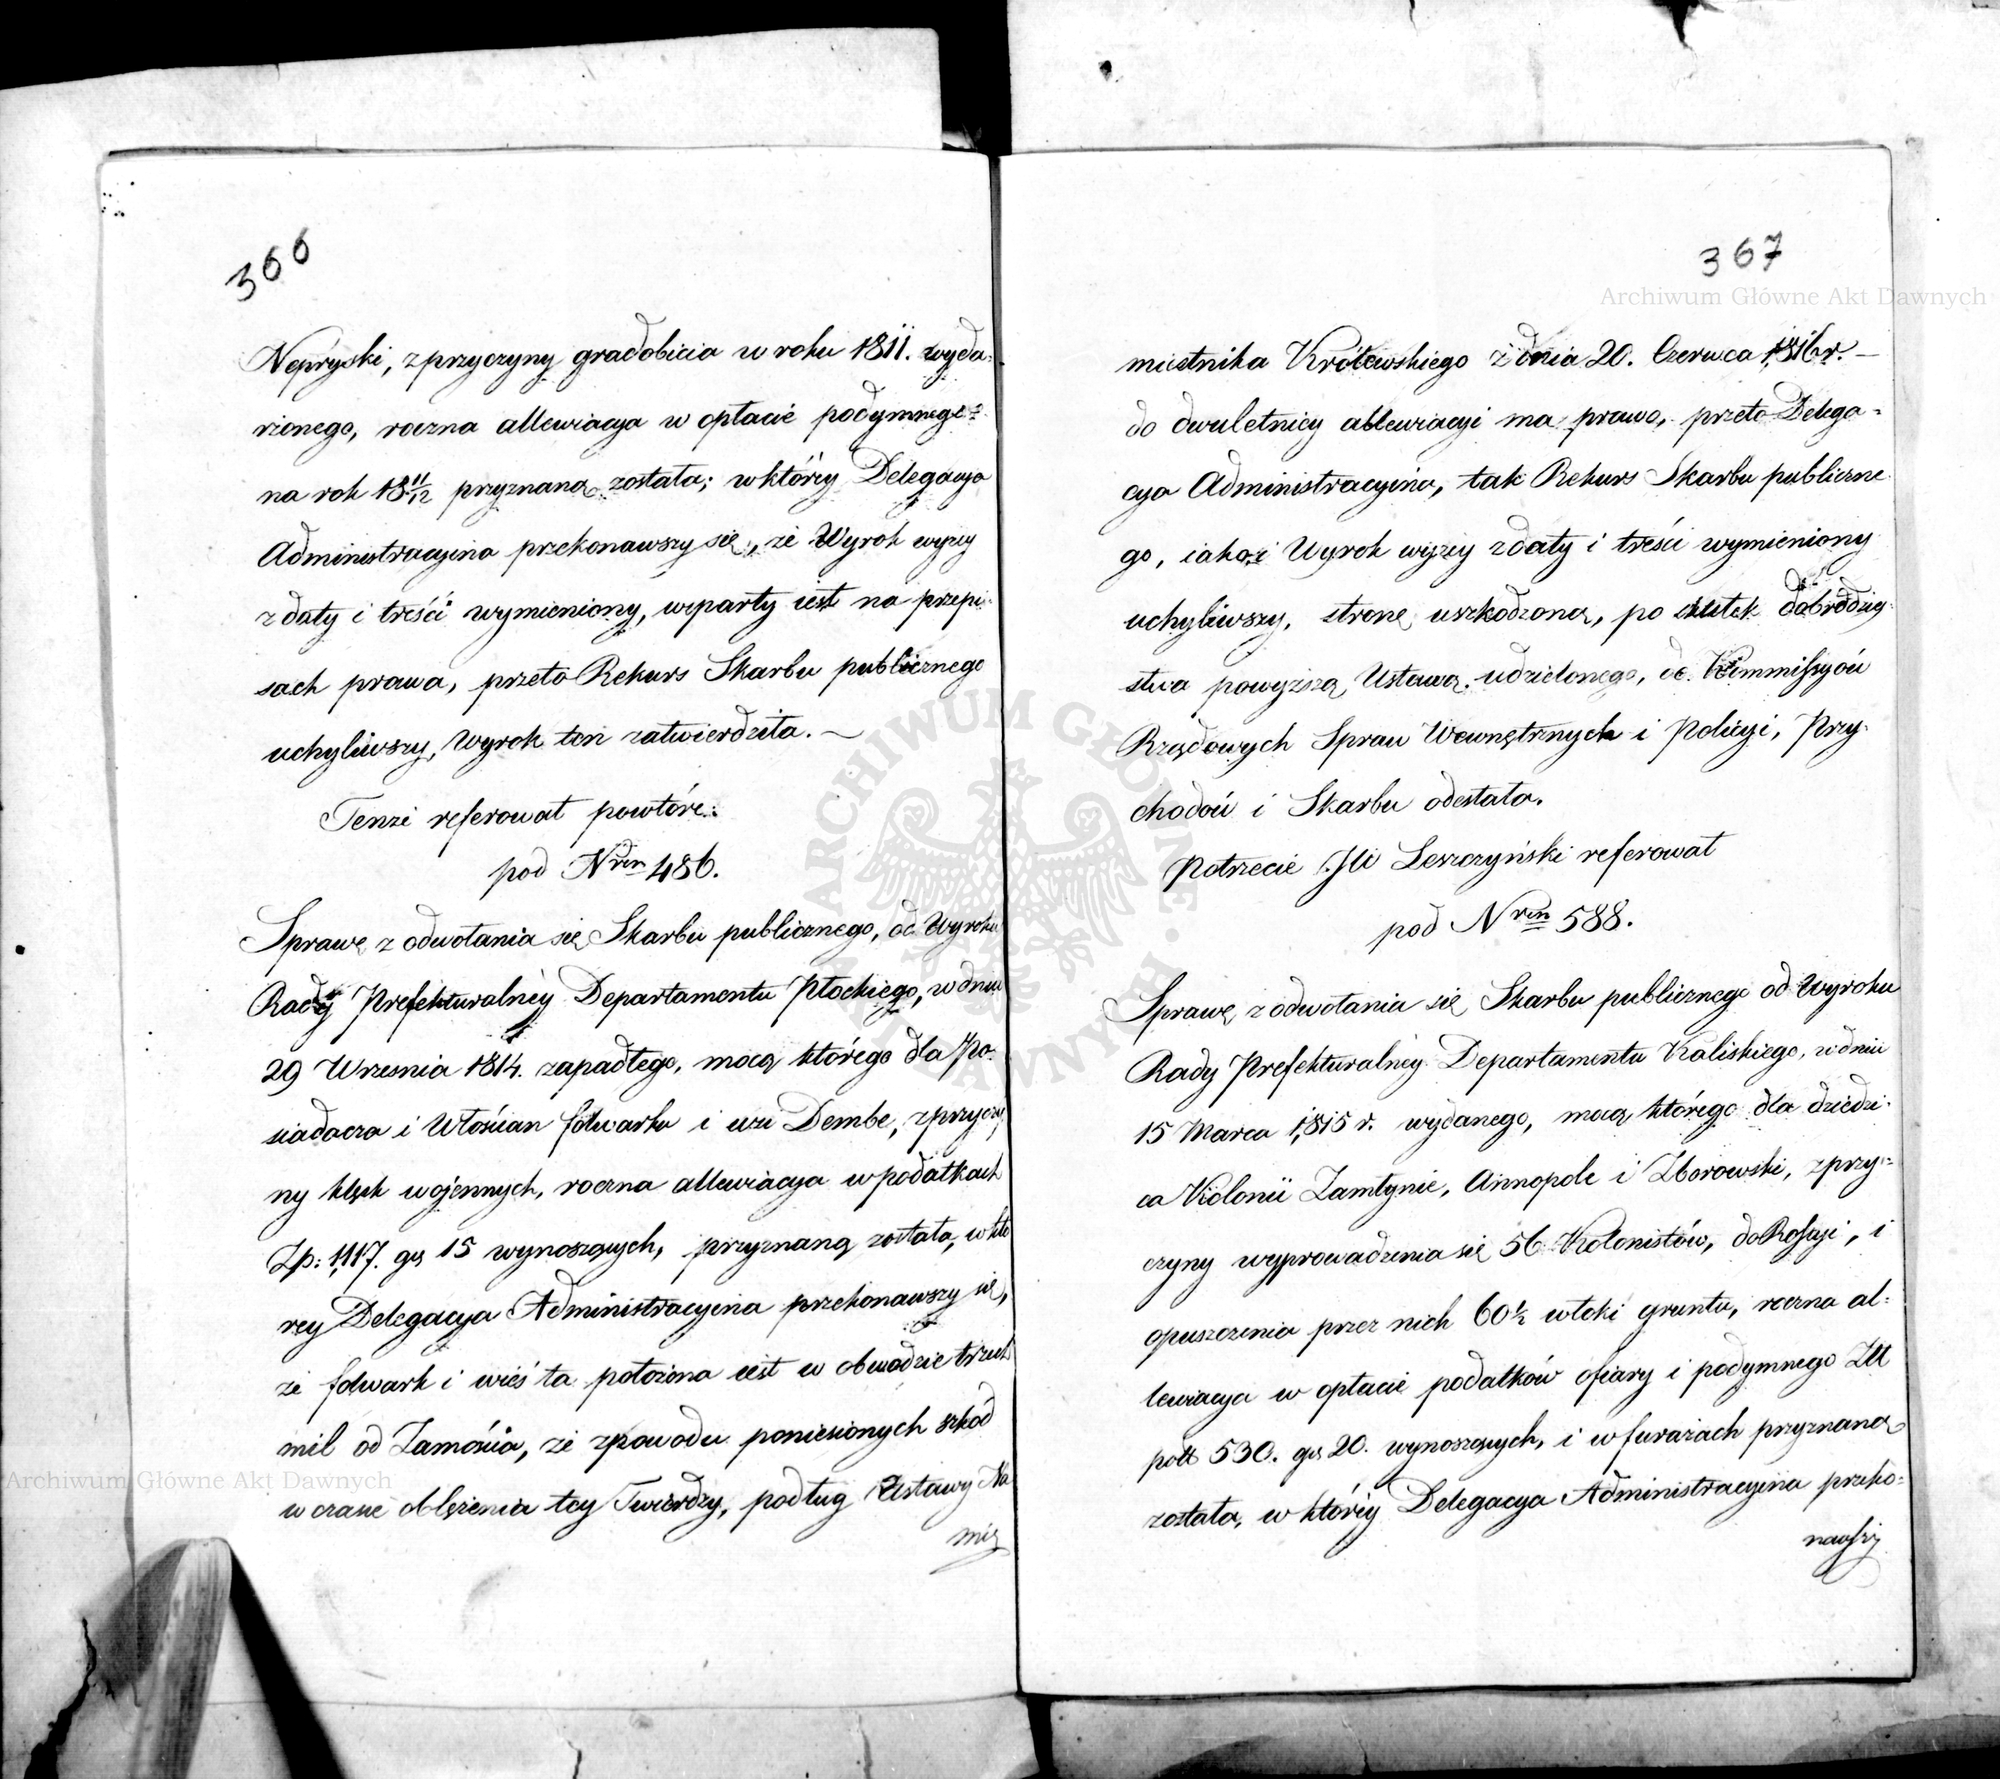 366
Nepryski, z przyczyny gradobicia w roku 1811. wyda-
rzonego, roczna allewiacya w opłacie podymnego
na rok 18 11/12 przyznaną została; w któréy Delegacya
Administracyina przekonawszy się, że Wyrok wyżey
z daty i treści wymieniony, wsparty iest na przepi-
sach prawa, przeto Rekurs Skarbu publicznego
uchyliwszy, Wyrok ten zatwierdziła. —
Tenże referował powtóre:
pod Nrem 486.
Sprawę z odwołania się Skarbu publicznego, od Wyroku
Rady Prefekturalnéy Departamentu Płockiego, w dniu
29 Wrzesnia 1814. zapadłego, mocą którego dla Po-
siadacza i Włościan folwarku i wsi Dembe, z przyczy
ny klęsk wojennych, roczna allewiacya w podatkach
Zp: 1,117. gr 15 wynoszących, przyznaną została, w któ
rey Delegacya Administracyina przekonawszy się,
że folwark i wieś ta położona iest w obwodzie trzech
mil od Zamościa, że z powodu poniesionych szkód
w czasie oblężenia tey Twierdzy, podług Ustawy Na
mie
367
Archiwum Główne Akt Dawnych
miestnika Królewskiego z dnia 20. Czerwca 1,816 r. —
do dwuletniey allewiacyi ma prawo, przeto Delega-
cya Administracyina, tak Rekurs Skarbu publiczne
go, iako i Wyrok wyżey z daty i treści wymieniony
uchyliwszy, stronę uszkodzoną, po skutek dobrodziey-
stwa powyższą Ustawą udzielonego, do Kommissyów
Rządowych Spraw Wewnętrznych i Policyi, Przy-
chodów i Skarbu odesłała.
Potrzecie JW Leszczyński referował
pod Nrem 588.
Sprawę z odwołania się Skarbu publicznego od Wyroku
Rady Prefekturalnéy Departamentu Kaliskiego, w dniu
15 Marca 1,815 r. wydanego, mocą którego dla dziedzi-
ca Kolonii Zamłynie, Annopole i Zborowski, z przy-
czyny wyprowadzenia się 56 Kolonistów, do Rossyi, i
opuszczenia przez nich 60½ włóki gruntu, roczna al-
lewiacya w opłacie podatków ofiary i podymnego Złt
pols 530. gr 20. wynoszących, i w furażach przyznaną
została, w któréy Delegacya Administracyina przeko-
nawszy
Archiwum Główne Akt Dawnych
ARCHIWUM GŁÓWNE AKT DAWNYCH